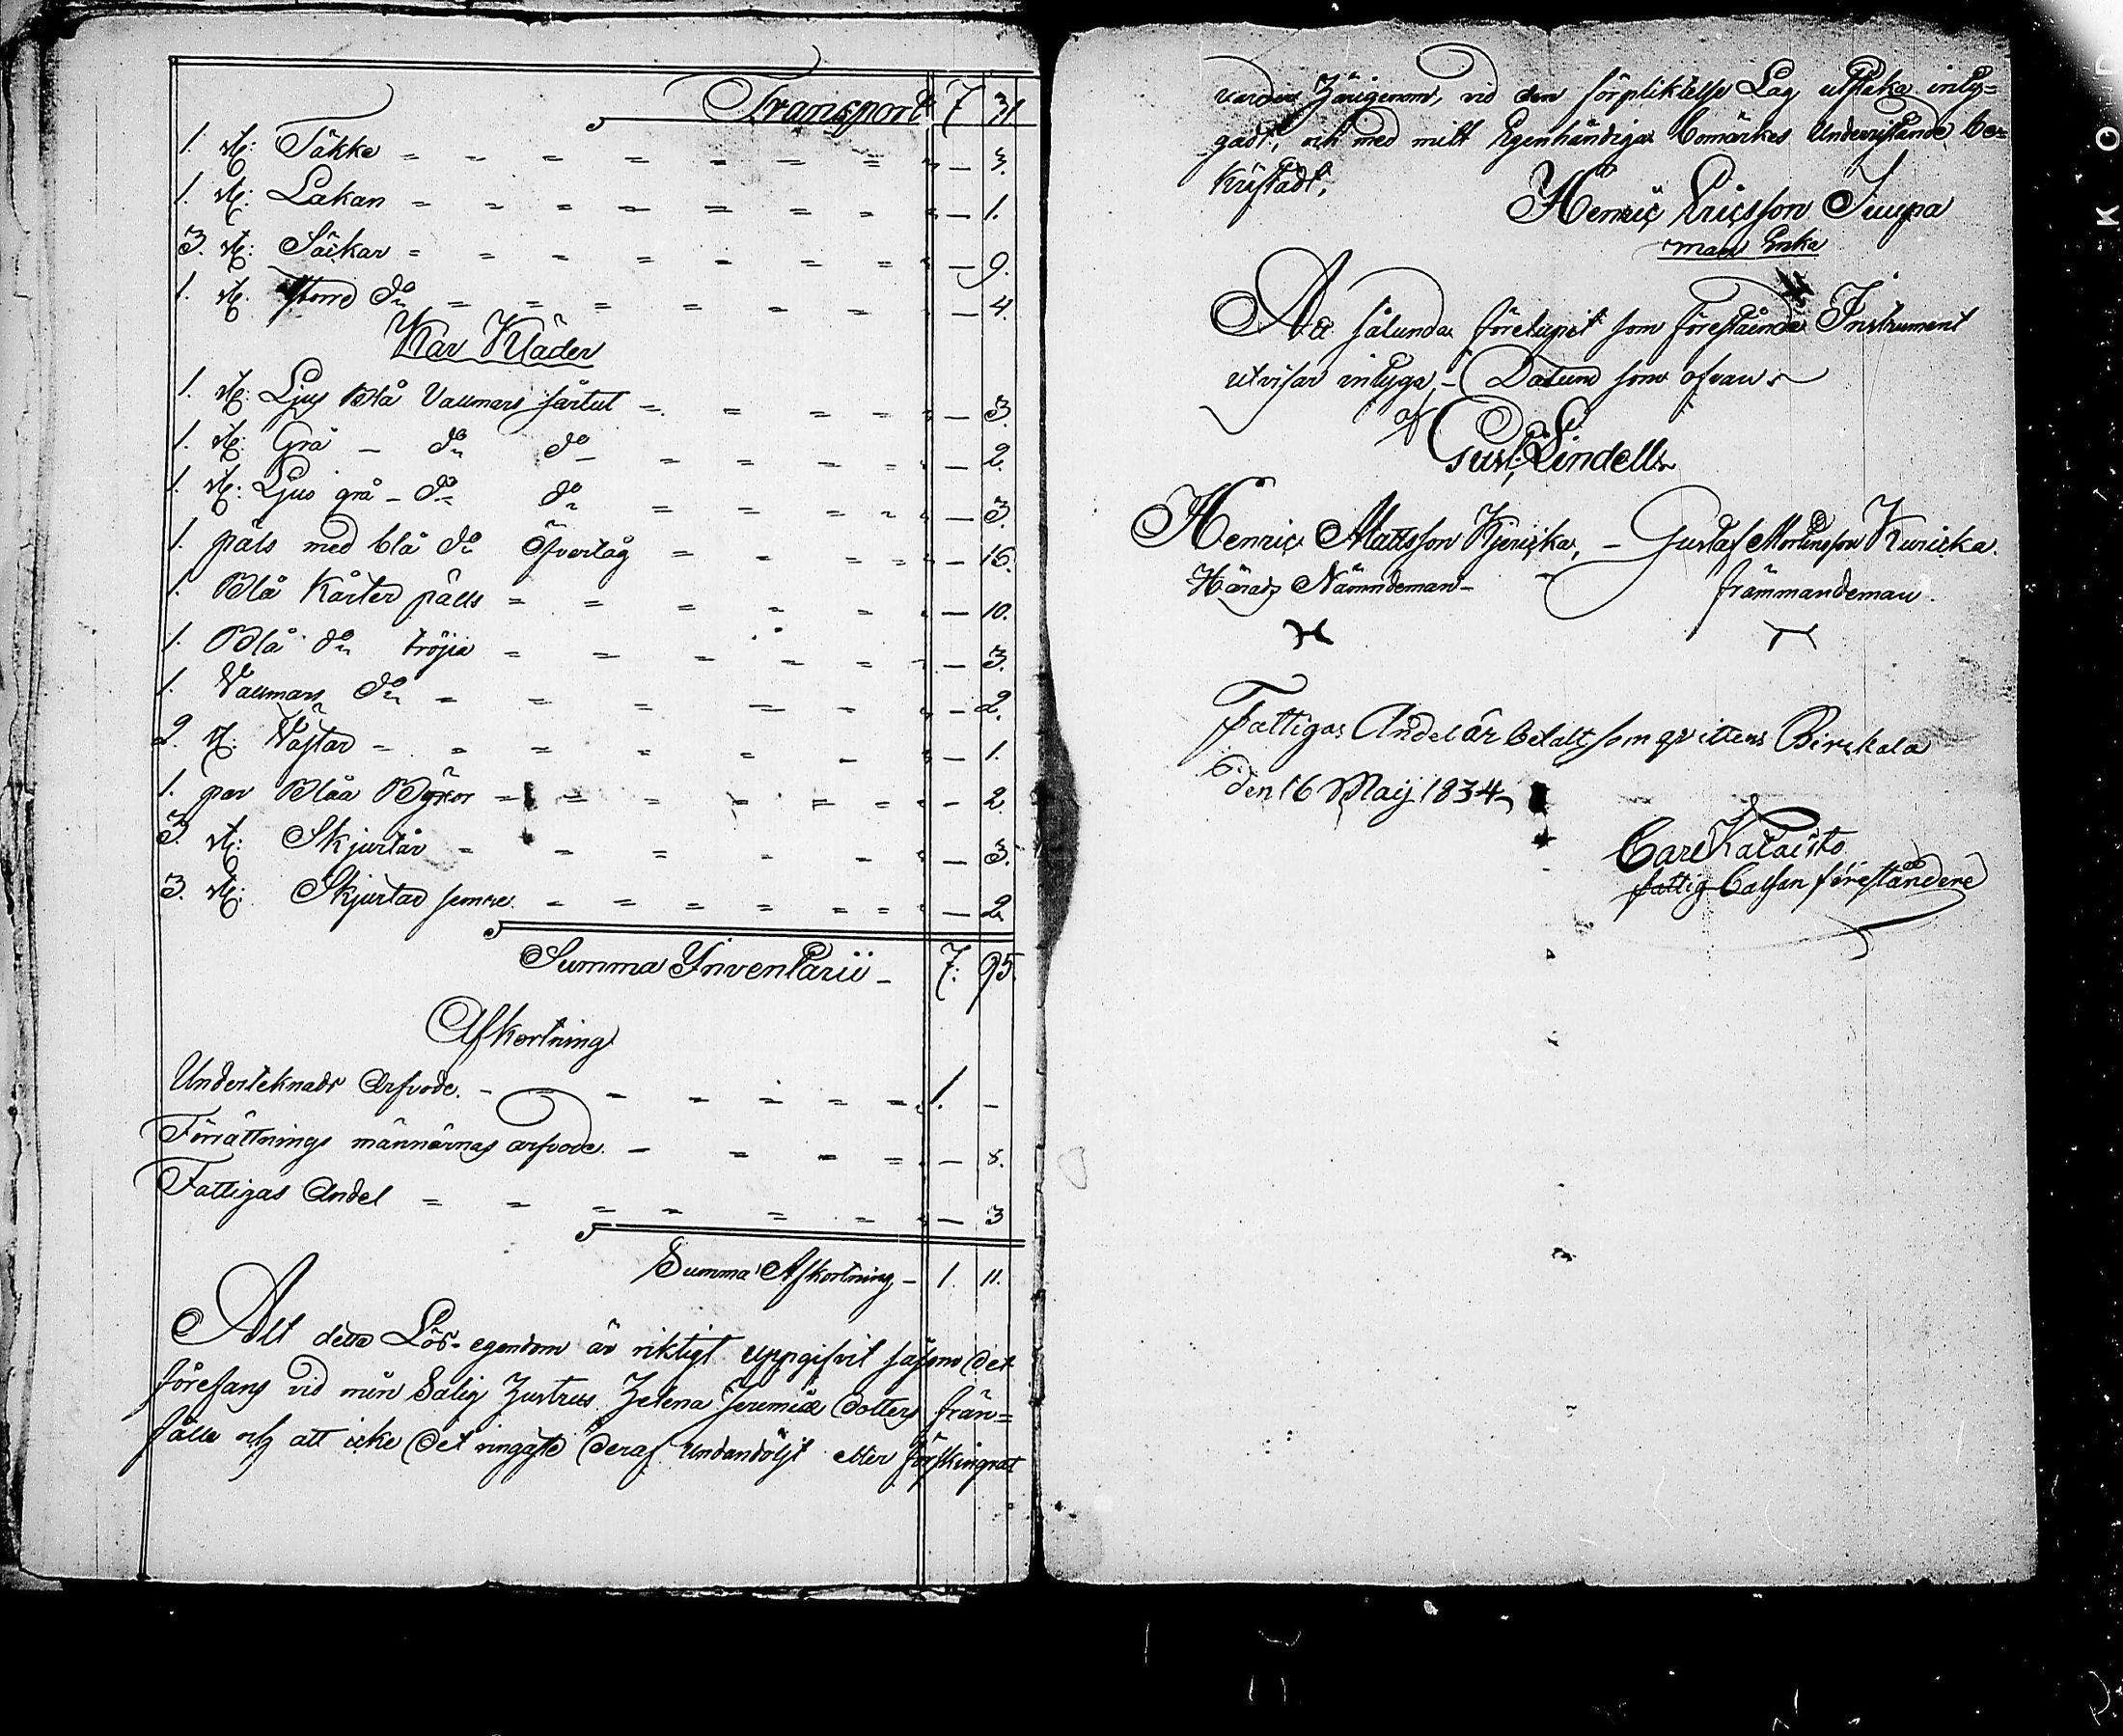 Transport 7 31
1. st: Täkke = = = = = = = — 3.
1. st: Lakan = = = = = = = — 1.
3. st: Säckar = = = = = = = — 9.
1. st. större do = = = = = = — 4.
Kar Kläder
1. st: Ljus Blå Vallmars sårtut = = = = — 3.
1. st: Grå — do do = = = = — 2.
1. st: Ljus grå — do do = = = = — 3.
1. päls med blå do Öfvertåg = = = = — 16.
1. Blå Kårter pälls = = = = = — 10.
1. Blå do tröjia = = = = = — 3.
1. Vallmars do = = = = = — 2.
2. st: Västar = = = = = — 1.
1. par Blåa Byxor = = = = = = — 2.
3. st: Skjurtår = = = = = — 3.
3. st: Skjurtar semre. = = = = = = — 2.
Summa Ynventarii — 7: 95.
Afkortning
Underteknads Arfvode. — = = = = = = 1. —
Förrättnings männärnas arfvode. — = = = — 8.
Fattigas Andel = = = = = = — 3
Summa Afkortning — 1. 11.
Alt detta Lös-egendom är riktigt uppgifvit såsom det
förefans vid min Salig Hustrus Helena Jeremiæ dotters frän=
fälle och att icke det ringaste deraf undandöljt eller förskingrat
varder Härigenom, vid den förpliktelse Lag utstaka inly=
gadt, och med mitt Egenhändiga bomärkes Underristande be=
kräftadt.
Henric Ericsson Juupa
Enka
At sålunda förelupit som förestående Instrument
utvisar intyga, — Datum som ofvan
af
Gust: Lindell
Henric Mattsson Kjericka, — Gustaf Mortensson Kuricka.
Härads Nämndeman — främmandeman.
Fattigas Andel är betalt som qvitteras Birckala
den 16 Maij 1834
Carl Kalaisto
fattig Cassan föreståndere
KOD